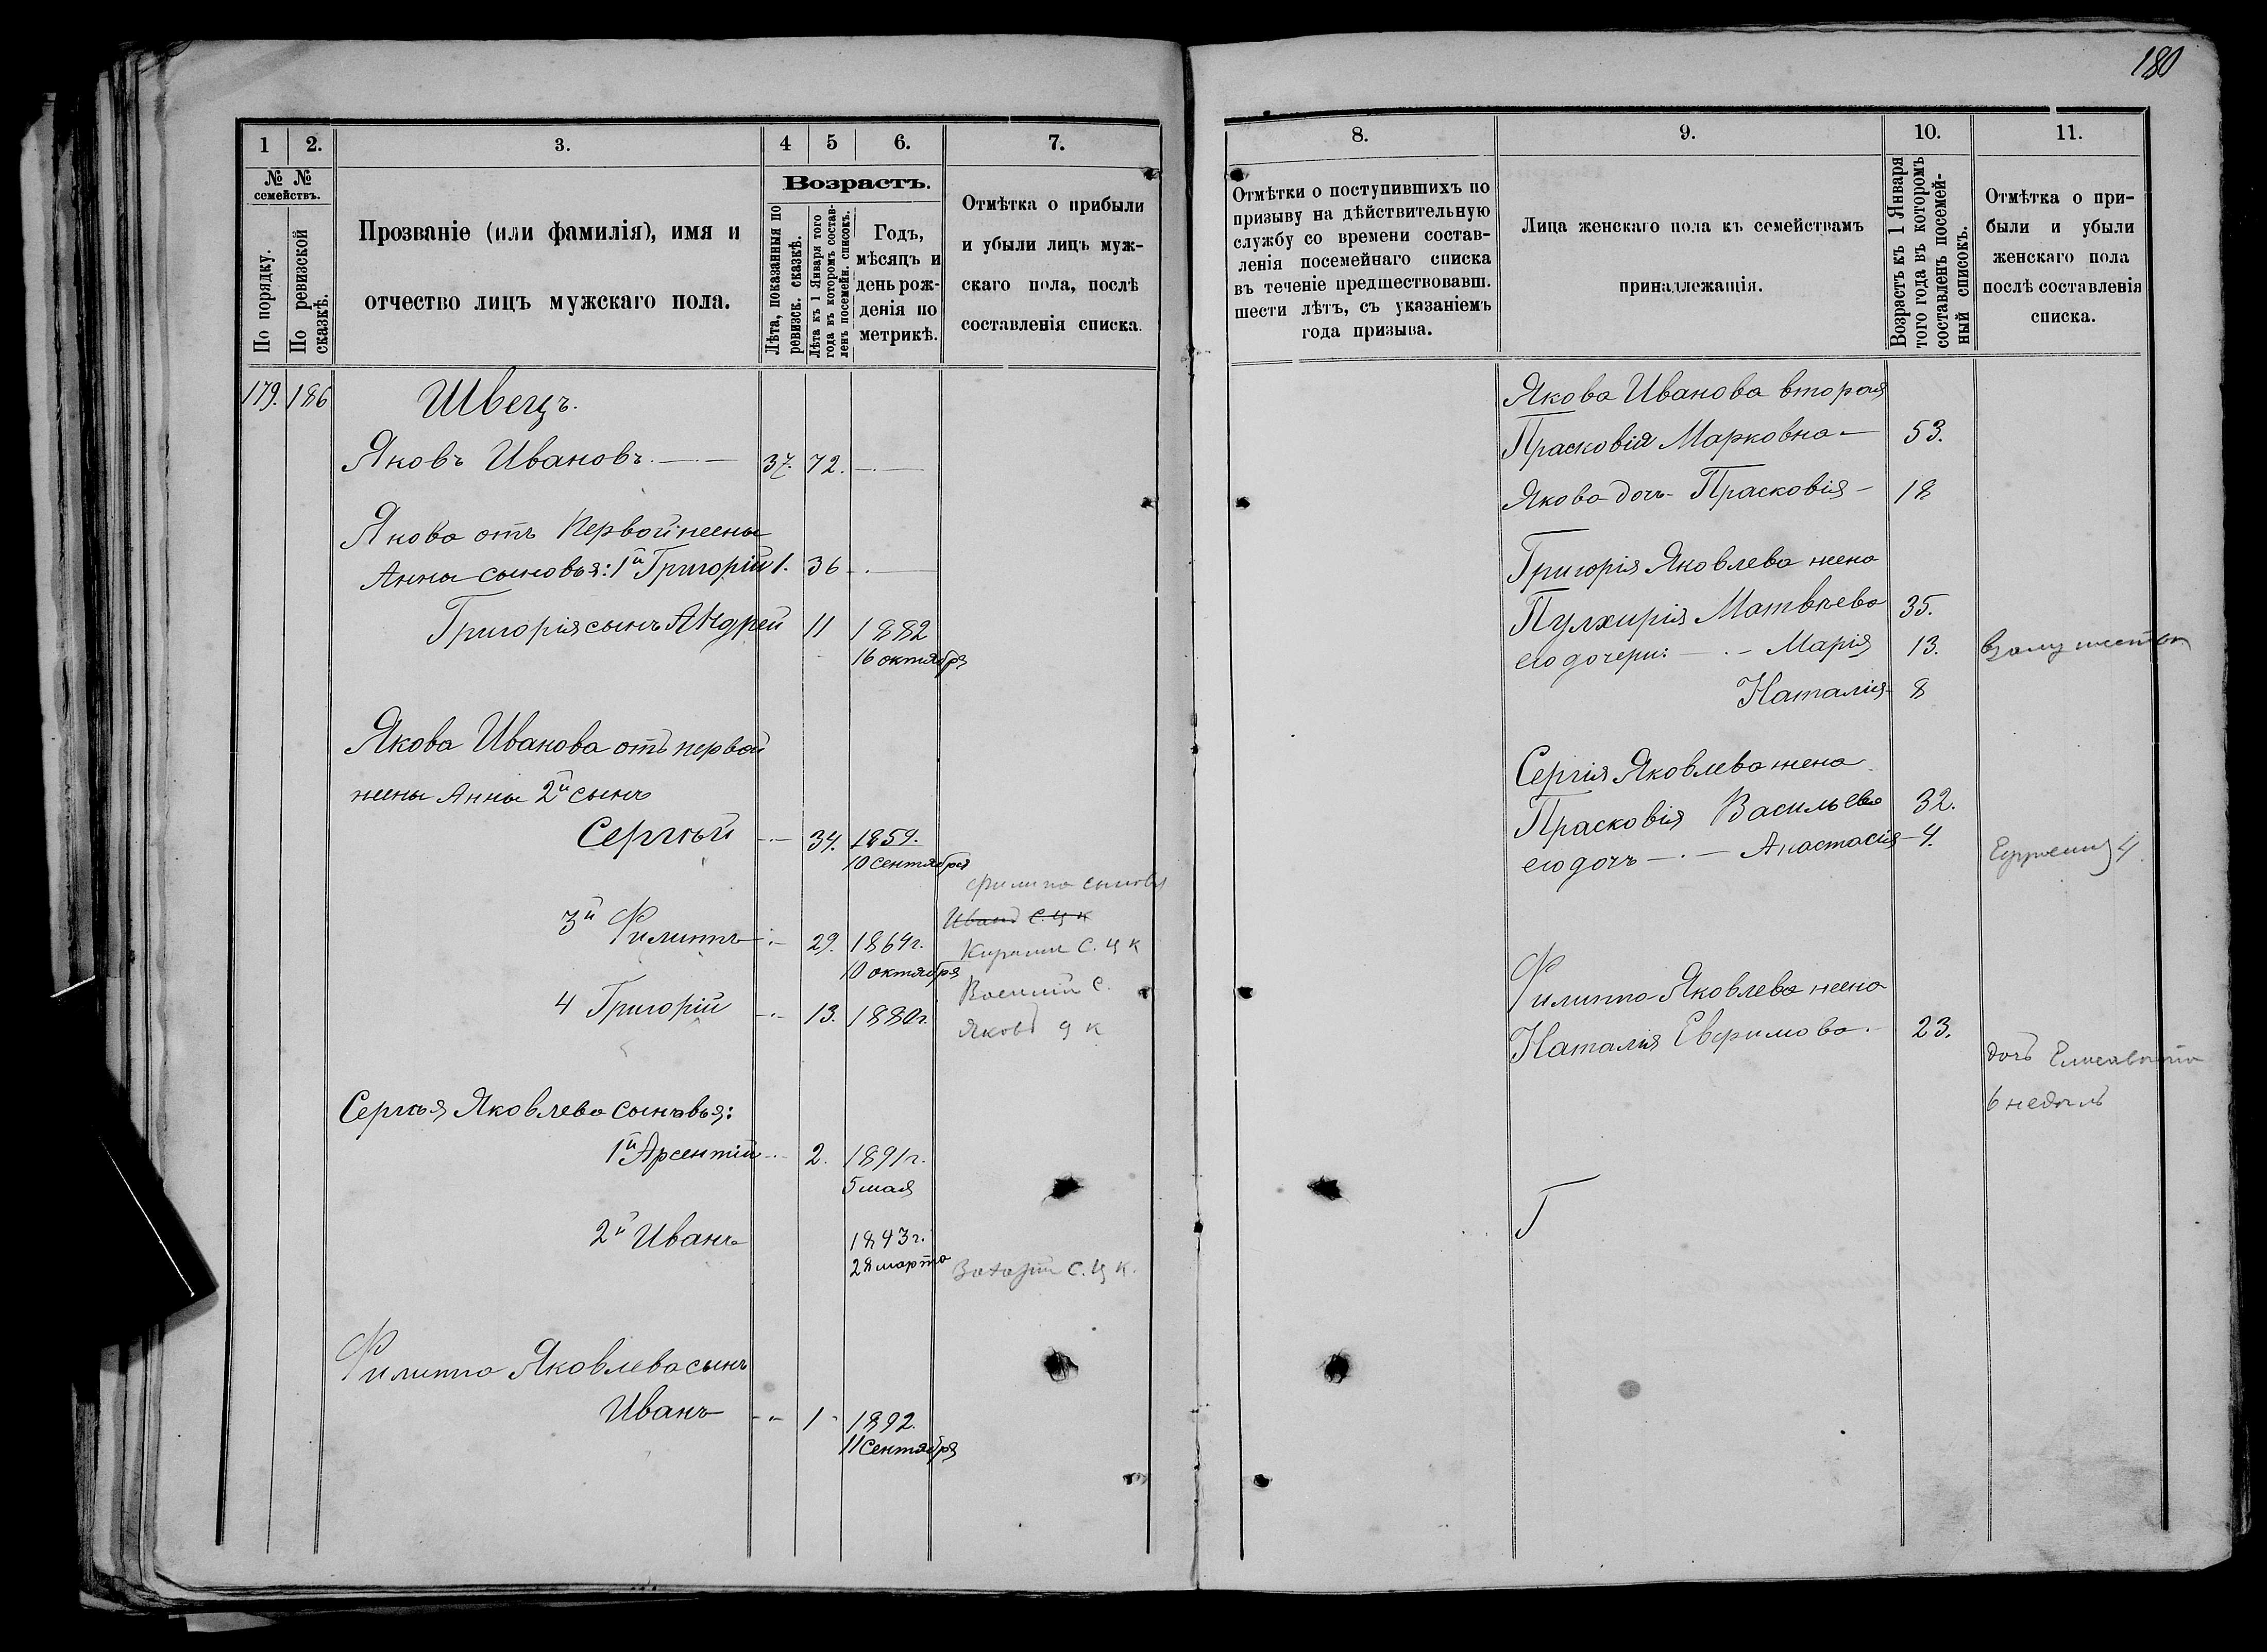 180
1 2. 3. 4 5 6. 7.
№ № семействъ.
По порядку.
По ревизской сказкѣ.
Прозваніе (или фамилія), имя и
отчество лицъ мужскаго пола.
Возрастъ.
Лѣта, показанныя по
ревизск. сказкѣ.
Лѣта къ 1 Января того
года въ которомъ состав-
ленъ посемейн. списокъ.
Годъ,
мѣсяцъ и
день рож-
денія по
метрикѣ.
Отмѣтка о прибыли
и убыли лицъ муж-
скаго пола, послѣ
составленія списка.
179. 186 Швецъ.
Яковъ Ивановъ 37. 72.
Якова отъ первой жены
Анны сыновья: 1й Григорій 1. 36
Григорія сынъ Андрей 11 1882
16 октября
Якова Иванова отъ первой
жены Анны 2й сынъ
Сергѣй 34. 1859.
10 сентября
Филипа сыновья
Иванъ с. ц к
3й Филиппъ 29. 1864г.
Кирилл с. ц к
10 октября
Василій с.
4 Григорій 13. 1880г.
Яковъ 9 к
Сергѣя Яковлева сыновья:
1й Арсентій 2. 1891г.
5 мая
2й Иванъ 1893г.
28 марта
Захарій с. ц к.
Филиппа Яковлева сынъ
Иванъ 1 1892.
11 сентября
8. 9. 10. 11.
Отмѣтки о поступившихъ по
призыву на дѣйствительную
службу со времени состав-
ленія посемейнаго списка
въ теченіе предшествовавш.
шести лѣтъ, съ указаніемъ
года призыва.
Лица женскаго пола къ семействамъ
принадлежащія.
Возрастъ къ 1 Января
того года въ которомъ
составленъ посемей-
ный списокъ.
Отмѣтка о при-
были и убыли
женскаго пола
послѣ составленія
списка.
Якова Иванова вторая
Прасковія Марковна 53.
Якова дочь Прасковія 18
Григорія Яковлева жена
Пулхирія Матвѣева 35.
его дочери: Марія 13. Взамужество
Наталія 8
Сергія Яковлева жена
Прасковія Васильева 32.
его дочь Анастасія 4.
4
Филиппа Яковлева жена
Наталія Евфимова. 23.
дочь Елисавета
6 недѣль
Г